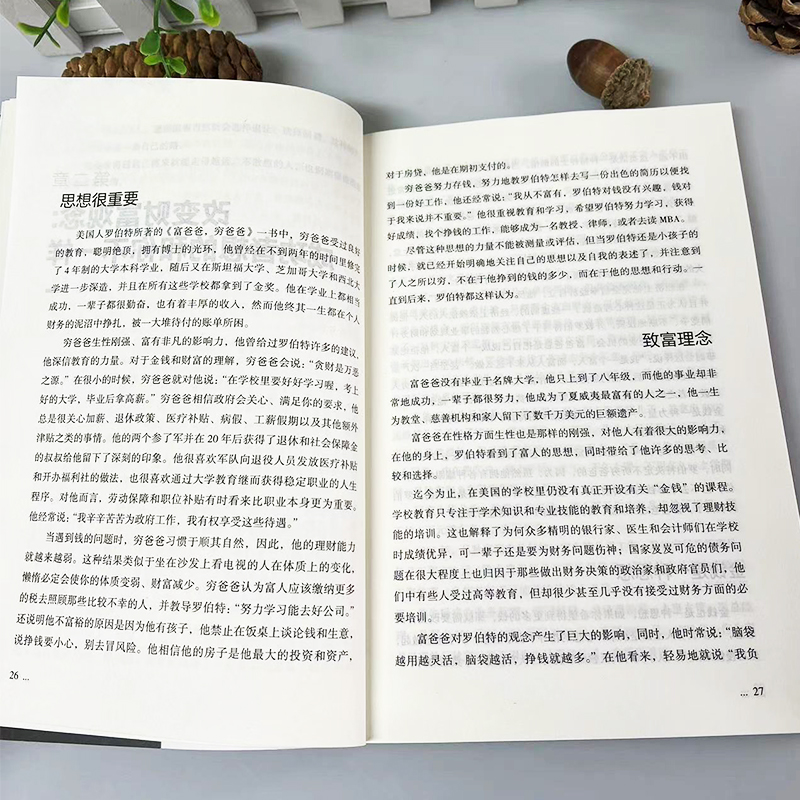 思想很重要
美国人罗伯特所著的《富爸爸，穷爸爸》一书中，穷爸爸受过良好
的教育、聪明绝顶，拥有博士的光环，他曾经在不到两年的时间里修完
了4年制的大学本科学业，随后又在斯坦福大学、芝加哥大学和西北大
学进一步深造，并且在所有这些学校都拿到了金奖。他在学业上都相当
成功，一辈子都很勤奋，也有着丰厚的收入，然而他终其一生都在个人
财务的泥沼中挣扎，被一大堆待付的账单所困。
穷爸爸生性刚强、富有非凡的影响力，他曾给过罗伯特许多的建议，
他深信教育的力量。对于金钱和财富的理解，穷爸爸会说：“贪财是万恶
之源。”在很小的时候，穷爸爸就对他说：“在学校里要好好学习喔，考上
好的大学，毕业后拿高薪。”穷爸爸相信政府会关心、满足你的要求，他
总是很关心加薪、退休政策、医疗补贴、病假、工薪假期以及其他额外
津贴之类的事情。他的两个参了军并在20年后获得了退休和社会保障金
的叔叔给他留下了深刻的印象。他很喜欢军队向退役人员发放医疗补贴
和开办福利社的做法，也很喜欢通过大学教育继而获得稳定职业的人生
程序。对他而言，劳动保障和职位补贴有时看来比职业本身更为重要。
他经常说：“我辛辛苦苦为政府工作，我有权享受这些待遇。”
当遇到钱的问题时，穷爸爸习惯于顺其自然，因此，他的理财能力
就越来越弱。这种结果类似于坐在沙发上看电视的人在体质上的变化，
懒惰必定会使你的体质变弱、财富减少。穷爸爸认为富人应该缴纳更多
的税去照顾那些比较不幸的人，并教导罗伯特：“努力学习能去好公司。”
还说明他不富裕的原因是因为他有孩子，他禁止在饭桌上谈论钱和生意，
说挣钱要小心，别去冒风险。他相信他的房子是他最大的投资和资产，
26 ...
对于房贷，他是在期初支付的。
穷爸爸努力存钱，努力地教罗伯特怎样去写一份出色的简历以便找
到一份好工作，他还经常说：“我从不富有，罗伯特对钱没有兴趣，钱对
于我来说并不重要。”他很重视教育和学习，希望罗伯特努力学习，获得
好成绩，找个挣钱的工作，能够成为一名教授、律师，或者去读MBA。
尽管这种思想的力量不能被测量或评估，但当罗伯特还是小孩子的
时候，就已经开始明确地关注自己的思想以及自我的表述了，并注意到
了人之所以穷，不在于他挣到的钱的多少，而在于他的思想和行动。一
直到后来，罗伯特都这样认为。
致富理念
富爸爸没有毕业于名牌大学，他只上到了八年级，而他的事业却非
常地成功，一辈子都很努力，他成为了夏威夷最富有的人之一，他一生
为教堂、慈善机构和家人留下了数千万美元的巨额遗产。
富爸爸在性格方面生性也是那样的刚强，对他人有着很大的影响力，
在他的身上，罗伯特看到了富人的思想，同时带给了他许多的思考、比
较和选择。
迄今为止，在美国的学校里仍没有真正开设有关“金钱”的课程。
学校教育只专注于学术知识和专业技能的教育和培养，却忽视了理财技
能的培训。这也解释了为何众多精明的银行家、医生和会计师们在学校
时成绩优异，可一辈子还是要为财务问题伤神；国家岌岌可危的债务问
题在很大程度上也归因于那些做出财务决策的政治家和政府官员们，他
们中有些人受过高等教育，但却很少甚至几乎没有接受过财务方面的必
要培训。
富爸爸对罗伯特的观念产生了巨大的影响，同时，他时常说：“脑袋
越用越灵活，脑袋越活，挣钱就越多。”在他看来，轻易地就说“我负
... 27